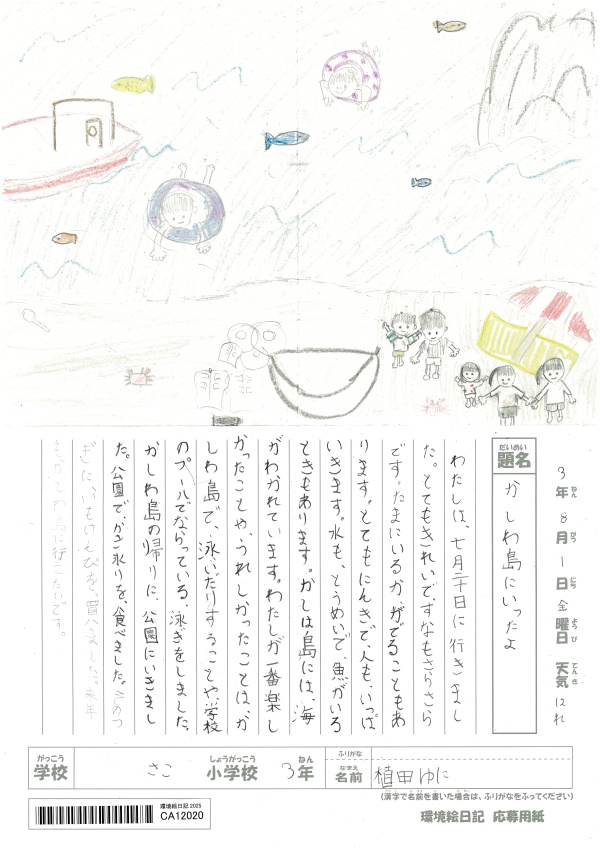 3年 8月 1日 金曜日 天気 はれ
ねん がつ にち ようび てんき
だいめい
題名
かしわ島にいったよ
わたしは、七月二十日に行きまし
た。とてもきれいです。すなもさらさら
です。たまにいるか、がでることもあ
ります。とてもにんきで、人も、いっぱ
いきます。水も、とうめいで、魚がいる
ときもあります。かしは島には、海
がわかれています。わたしが一番楽し
かったことや、うれしかったことは、か
しわ島で、泳いだりすることや、学校
のプールでならっている、泳ぎをしました。
かしわ島の帰りに、公園にいきまし
た。公園で、かき氷りを、食べました。
買いました。来年
もかしわ島に行こたいです。
がっこう しょうがっこう ねん
学校 さこ 小学校 3年
ふりがな
なまえ
名前 植田ゆに
(漢字で名前を書いた場合は、ふりがなをふってください)
環境絵日記 2025
CA12020
環境絵日記 応募用紙